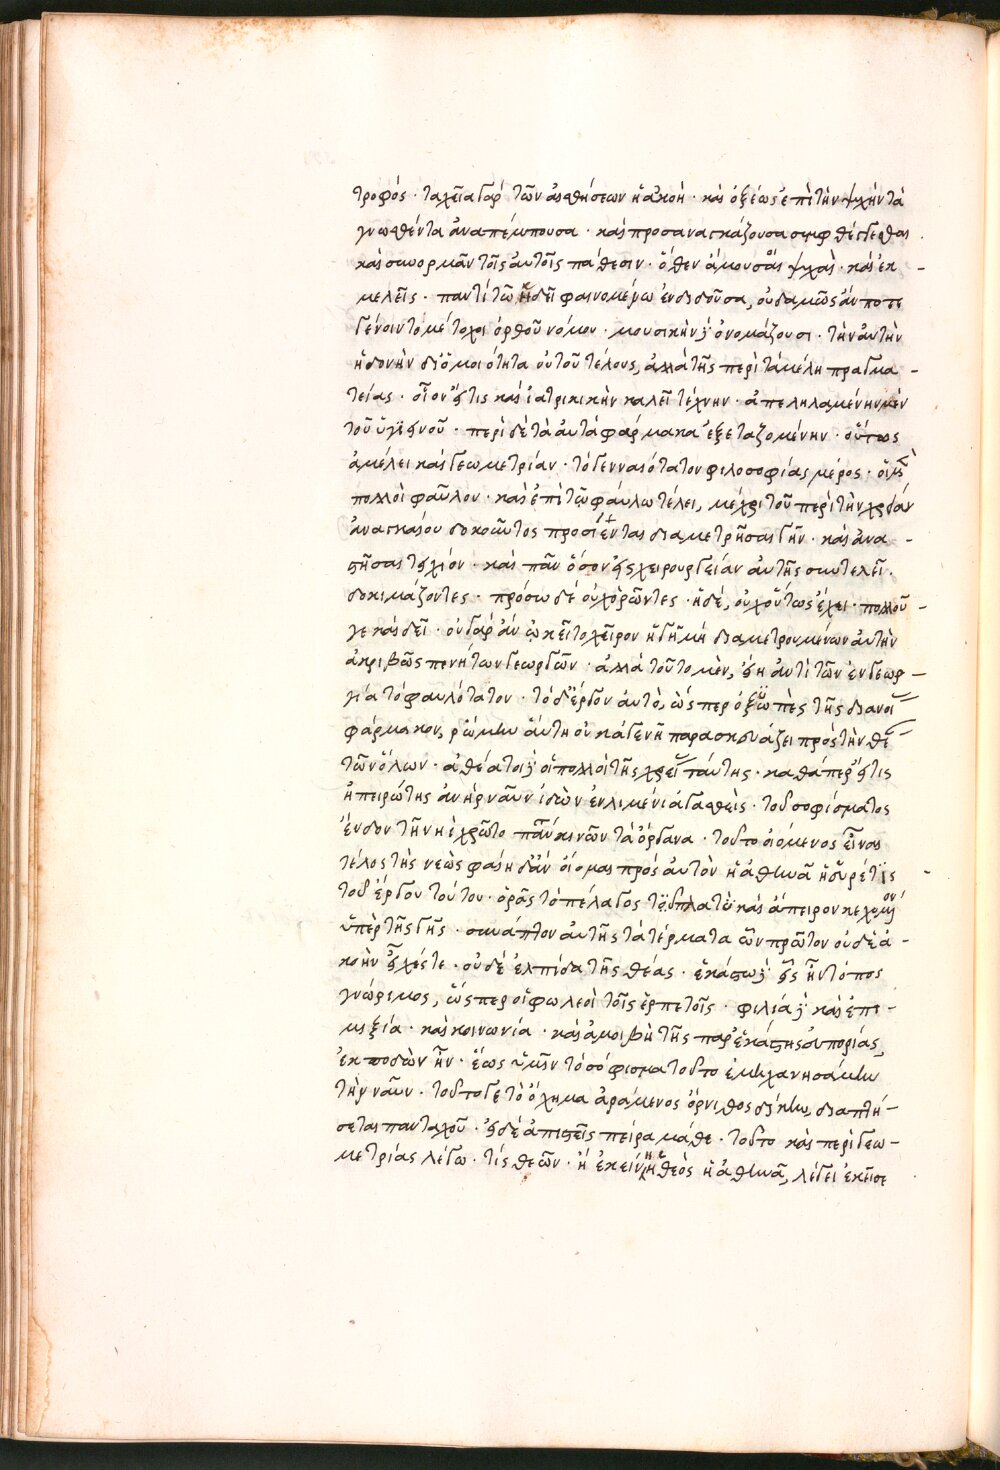 τροφός · ταχεῖα γὰρ τῶν αἰσθήσεων ἡ ἀκοὴ · καὶ ὀξέως ἐπὶ τὴν ψυχὴν τὰ
γνωσθέντα ἀναπέμπουσα · καὶ προσαναγκάζουσα συμφθέγγεσθαι
καὶ συνορμᾶν τοῖς αὐτοῖς πάθεσιν · ὅθεν ἄμουσοι ψυχαὶ · καὶ ἐκ-
μελεῖς · παντὶ τῷ ἡδεῖ φαινομένω ἐνδιδοῦσαι, οὐδαμῶς ἄν ποτε
γένοιντο μέτοχοι ὀρθοῦ νόμου · μουσικὴν δὲ ὀνομάζουσι · τὴν αὐτὴν
ἡδονὴν δι' ὁμοιότητα οὐ τοῦ τέλους, ἀλλὰ τῆς περὶ τὰ μέλη πραγμα-
τείας · οἷον εἴ τις καὶ ἰατρικικὴν καλεῖ τέχνην · ἀπεληλαμένην μὲν
τοῦ ὑγιεινοῦ · περὶ δὲ τὰ αὐτὰ φάρμακα ἐξεταζομένην · οὕτως
ἀμέλει καὶ γεωμετρίαν · τὸ γενναιότατον φιλοσοφίας μέρος · οἱ μὲν
πολλοὶ φαῦλον · καὶ ἐπὶ τῷ φαύλω τέλει, μέχρι τοῦ περὶ τὴν χρείαν
ἀναγκαίου δοκοῦντος προσιέντας διαμετρῆσαι γῆν · καὶ ἀνα-
στῆσαι τειχίον · καὶ πᾶν ὅσον εἰς χειρουργείαν αὐτῆς συντελεῖ.
δοκιμάζοντες · πρόσω δὲ οὐχ ὁρῶντες · ἡ δέ, οὐχ οὕτως ἔχει · πολλοῦ-
γε καὶ δεῖ · οὐ γὰρ ἂν ᾠκεῖτο χεῖρον ἡ γῆ μὴ διαμετρουμένων αὐτὴν
ἀκριβῶς πενήτων γεωργῶν · ἀλλὰ τοῦτο μὲν, εἴη ἄν τι τῶν ἐν γεωρ-
γία τὸ φαυλότατον · τὸ δ' ἔργον αὐτὸ, ὥσπερ ὀξυωπὲς τῆς διανοί
φάρμακον, ῥώμην αὕτη οὐκ ἀγενῆ παρασκευάζει πρὸς τὴν θέ
τῶν ὅλων · ἀθέατοι δὲ οἱ πολλοὶ τῆς χρεί ταύτης · καθάπερ εἴ τις
ἠπειρώτης ἀνὴρ ναῦν ἰδὼν ἐν λιμένι ἀγασθεὶς · τοῦ σοφίσματος
ἔνδον τῆ νηῒ χρῷτο πάντα κινῶν τὰ ὄργανα · τοῦτο οἰόμενος εἶναι
τέλος τῆς νεὼς φαίη δ' ἂν οἶμαι πρὸς αὐτὸν ἡ ἀθηνᾶ ἡ εὑρέτις
τοῦ ἔργου τούτου · ὁρᾶς τὸ πέλαγος τοῦτο πλατὺ καὶ ἄπειρον κεχυμένον
ὑπὲρ τῆς γῆς · συνάπτον αὐτῆς τὰ τέρματα ὧν πρῶτον οὐδὲ ἀ-
κοὴν εἴχετε · οὐδὲ ἐλπίδα τῆς θέας · ἑκάστω δὲ εἷς ἦν τόπος
γνώριμος, ὥσπερ οἱ φωλεοὶ τοῖς ἑρπετοῖς · φιλία δὲ καὶ ἐπι-
μιξία · καὶ κοινωνία · καὶ ἀμοιβὴ τῆς παρ' ἑκάστης εὐπορίας,
ἐκποδὼν ἦν · ἕως ὑμῖν τὸ σόφισμα τοῦτο ἐμηχανησάμην
τὴν ναῦν · τοῦτο γε τὸ ὄχημα ἀράμενος ὄρνιθος δίκην, διαπτή-
σεται πανταχοῦ · εἰ δὲ ἀπιστεῖς πείρα μάθε · τοῦτο καὶ περὶ γεω-
μετρίας λέγω · τίς θεῶν · ἢ ἐκείνη ἡ θεὸς ἡ ἀθηνᾶ, λέγει ἐκεῖσε